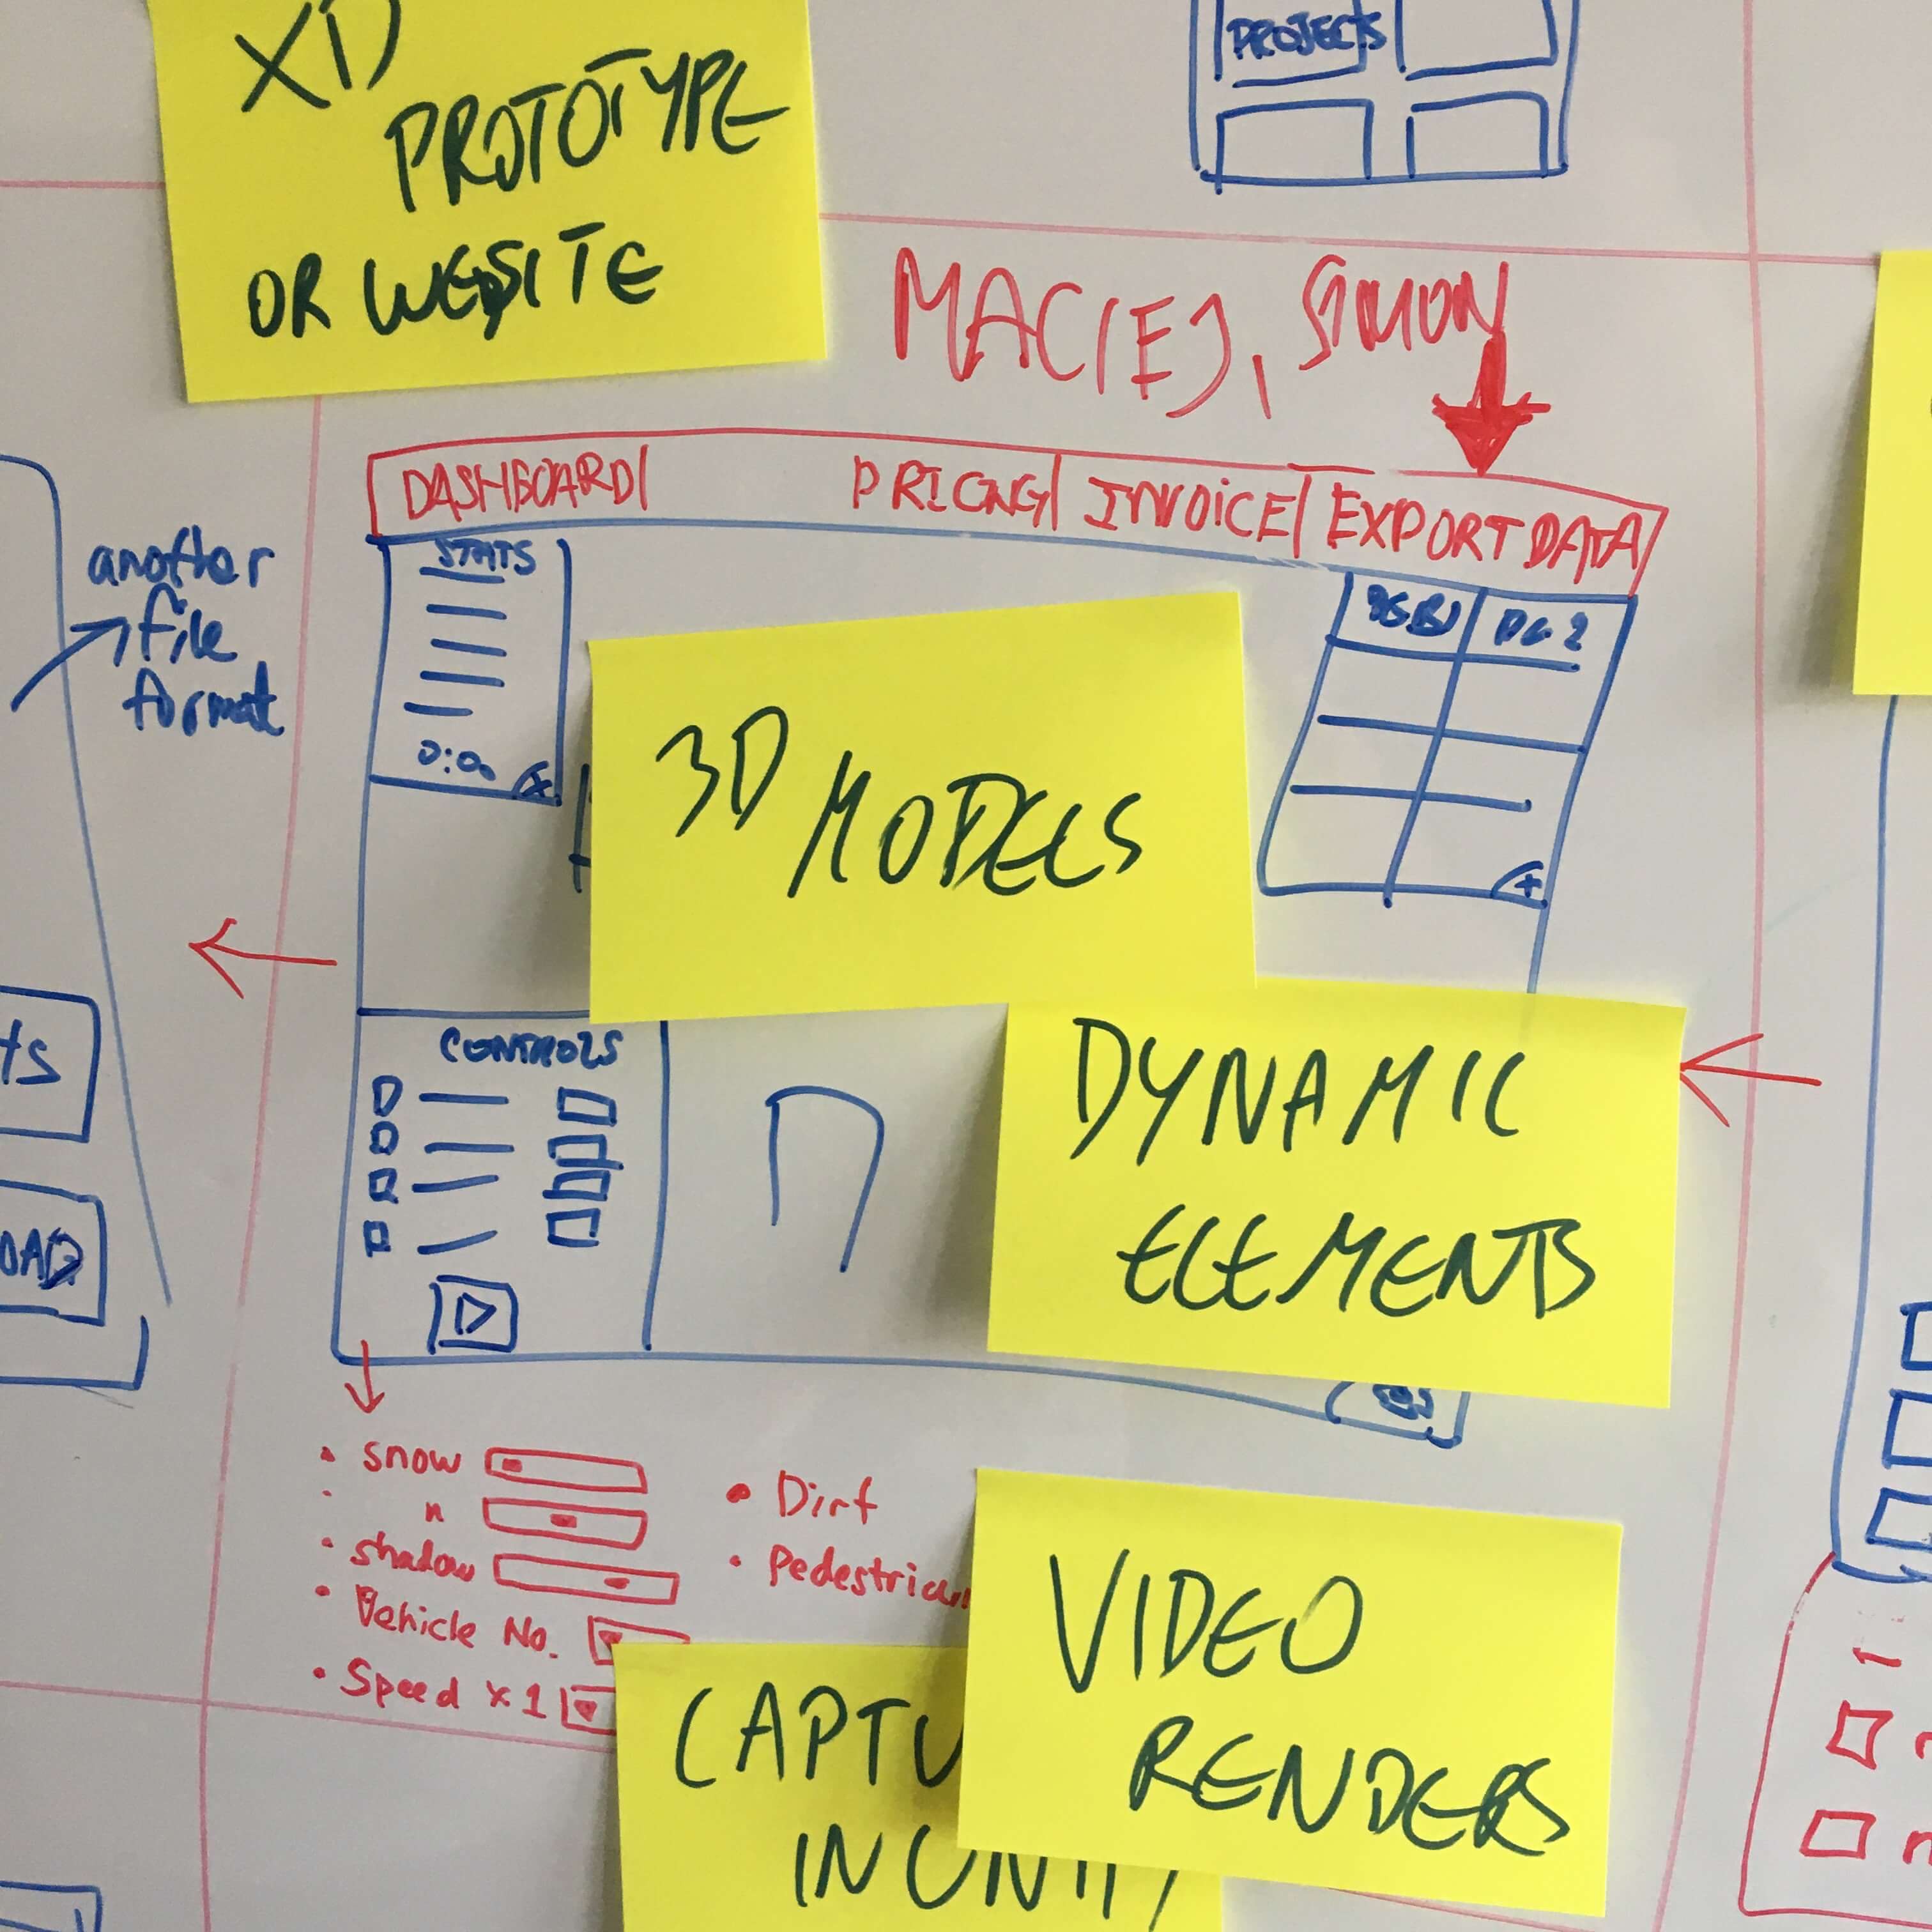 XD
PROTOTYPE
OR WEBSITE
PROJECTS
MACIEJ, SIMON
DASHBOARD
PRICNG
INVOICE
EXPORT DATA
another
file
format
STATS
0:00
3D
MODELS
CONTROLS
DYNAMIC
ELEMENTS
• snow
• "
• shadow
• Vehicle No.
• Speed x1
• Dirt
• Pedestrian
VIDEO
RENDERS
CAPTU
IN UNITY